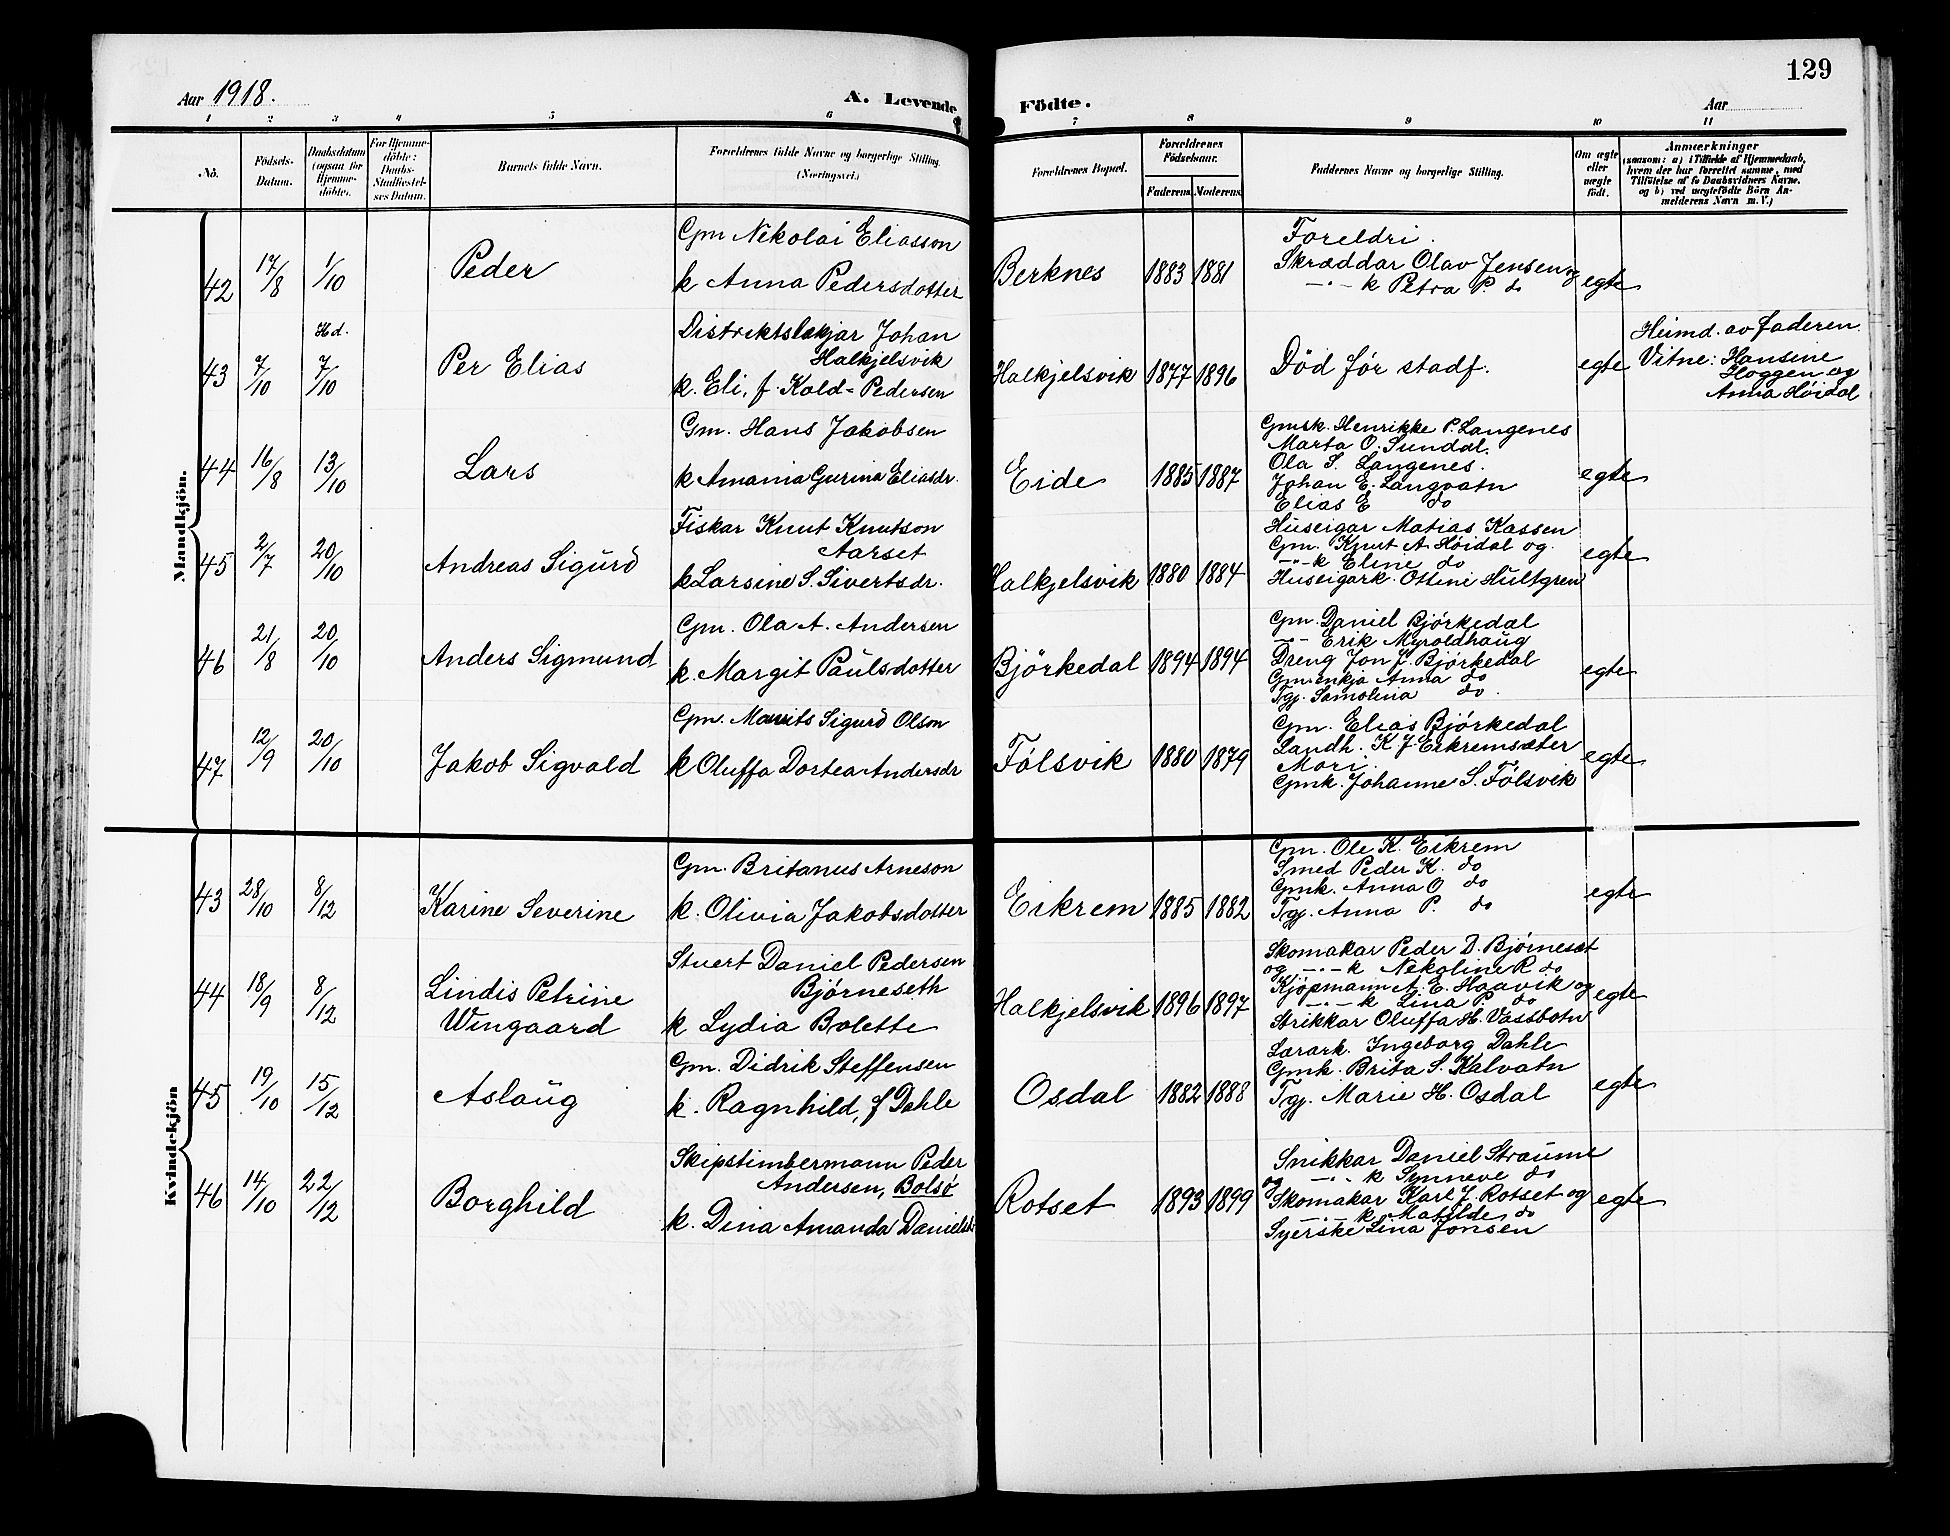 129
Aar 1918.
A. Levende Födte.
Aar
1 2 3 4 5 6 7 8 9 10 11
No.
Födsels-Datum.
Daabsdatum (ogsaa for Hjemme-döbte.
For Hjemme-döbte: Daabs-Stadfæstel-ses Datum.
Barnets fulde Navn.
Forældrenes fulde Navne og borgerlige Stilling. (Næringsvei.)
Forældrenes Bopæl.
Forældrenes Födselsaar.
Faderens. Moderens.
Faddernes Navne og borgerlige Stilling.
Om ægte eller uægte födt.
Anmærkninger
(saasom: a) i Tilfælde af Hjemmedaab,
hvem der har forrettet samme, med
Tilföielse af to Daabsvidners Navne,
og b) ved uægtefödte Börn An-
melderens Navn m. V.)
Mandkjön.
42 17/8 1/10 Peder
Gm Nikolai Eliasson
k Anna Pedersdotter
Berknes 1883 1881
Foreldri.
Skræddar Olav Jensen og
—"— k Petra P. do
egte
43 7/10 Hd. 7/10 Per Elias
Distriktslækjar Johan
Halkjelsvik
k. Eli, f. Kold-Pedersen
Halkjelsvik 1877 1896
Död før stadf.
egte
Heimd. av faderen.
Vitne: Hansine
Hoggen og
Anna Høidal
44 16/8 13/10 Lars
Gm. Hans Jakobsen
k Amania Gurina Eliasdr.
Eide 1885 1887
Gmsk. Henrikke P. Langenes
Marta O. Sundal.
Ola S. Langenes.
Johan E. Langvatn
Elias E do
egte
45 2/7 20/10 Andreas Sigurd
Fiskar Knut Knutson
Aarset
k Larsine S. Sivertsdr.
Halkjelsvik 1880 1884
Huseigar Matias Kassen
Gm. Knut A. Høidal og
—"— k Eline do
Huseigark. Ottine Hultgren
egte
46 21/8 20/10 Anders Sigmund
Gm. Ola A. Andersen
k. Margit Paulsdotter
Björkedal 1894 1894
Gm. Daniel Bjørkedal
—"— Erik Myroldhaug
Dreng Jon J. Bjørkedal
Gm.enkja Anna do
Tgj. Samolina do.
egte
47 12/9 20/10 Jakob Sigvald
Gm. Maurits Sigurd Olson
k Oluffa Dortea Andersdr
Følsvik 1880 1879
Gm. Elias Bjørkedal
Landh. K. J. Eikremsæter
Mori.
Gmk. Johanne S. Følsvik
egte
Kvindekjön
43 28/10 8/12 Karine Severine
Gm. Britanus Arneson
k. Olivia Jakobsdotter
Eikrem 1885 1882
Gm. Ole K. Eikrem
Smed Peder K. do
Gmk. Anna O do
Tgj. Anna P. do
egte
44 18/9 8/12 Lindis Petrine
Wingaard
Stuert Daniel Pedersen
Bjørneseth
k Lydia Bolette
Halkjelsvik 1896 1897
Skomakar Peder D. Bjørneset
og —"— k Nekoline R do
Kjøpmann A. E. Haavik og
—"— k Lina P. do
Strikkar Oluffa H. Vassbotn
egte
45 19/10 15/12 Aslaug
Gm. Didrik Steffensen
k. Ragnhild, f Dahle
Osdal 1882 1888
Lærark. Ingeborg Dahle
Gmk. Brita S. Kalvatn
Tgj. Marie H. Osdal
egte
46 14/10 22/12 Borghild
Skipstimbermann Peder
Andersen, Bolsø
k. Dina Amanda Danielsdr
Rotset 1893 1899
Snikkar Daniel Straume
og —"— k Synneve do
Skomakar Karl J. Rotset og
—"— k Matilde do
Syerske Lina Jonsen
egte